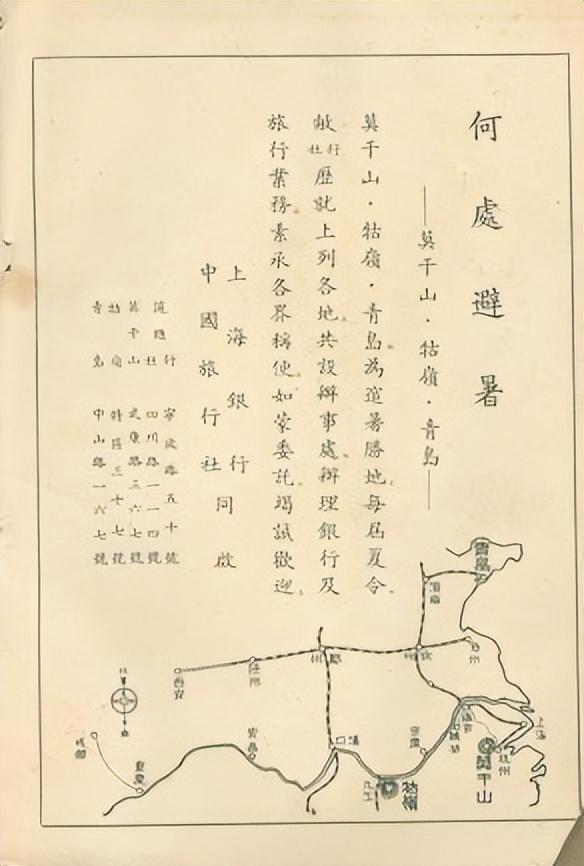 何處避暑
——莫干山·牯嶺·青島——
莫干山·牯嶺·青島為避暑勝地。每屆夏令。
敝行社歷就上列各地。共設辦事處。辦理銀行及
旅行業務。素承各界稱便。如蒙委託。竭誠歡迎。
上海銀行
中國旅行社
同啟
行 寧波路五十號
社 四川路一一四號
莫干山 武康路三六七號
牯嶺 特區三十七號
青島 中山路一六七號
青島
濟南
徐州
鄭州
西安
宜昌
重慶
成都
漢口
九江
牯嶺
安慶
南京
上海
杭州
莫干山
北
南